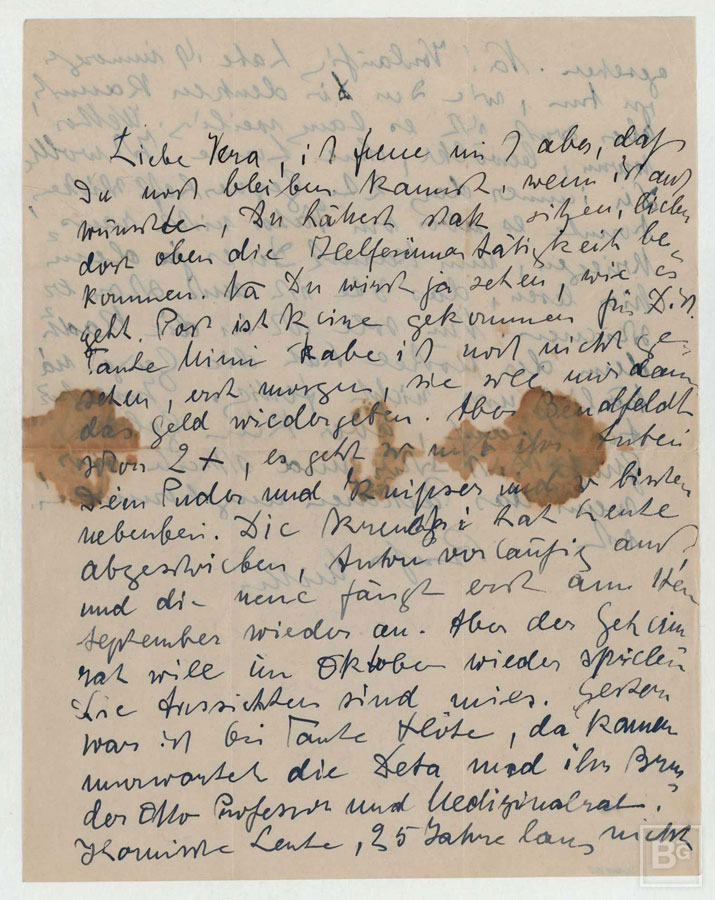 Liebe Vera, ich freue mich aber, daß
Du noch bleiben kannst, wenn ich auch
wünschte, Du hättest stak sitzen,
dort oben die Helferinnentätigkeit be-
kommen. Na Du wirst ja sehen, wie es
geht. Post ist keine gekommen für D.
Tante Mimi habe ich noch nicht ge-
sehen, erst morgen, sie soll mir dann
das Geld wiedergeben. Aber Bendfeldt
schon 2x, es geht so mit ihr. Anbei
Dein Puder und Knipser und so bischen
nebenbei. Die hat heute
abgeschrieben, Anton vorläufig auch,
und die neue fängt erst am 1ten
September wieder an. Aber der Geheim
rat will im Oktober wieder spielen
Die Aussichten sind mies. Gestern
war ich bei Tante Flöte, da kamen
unerwartet die Deta und ihr Bru-
der Otto Professor und Medizinalrat.
Komische Leute, 25 Jahre lang nicht
BG